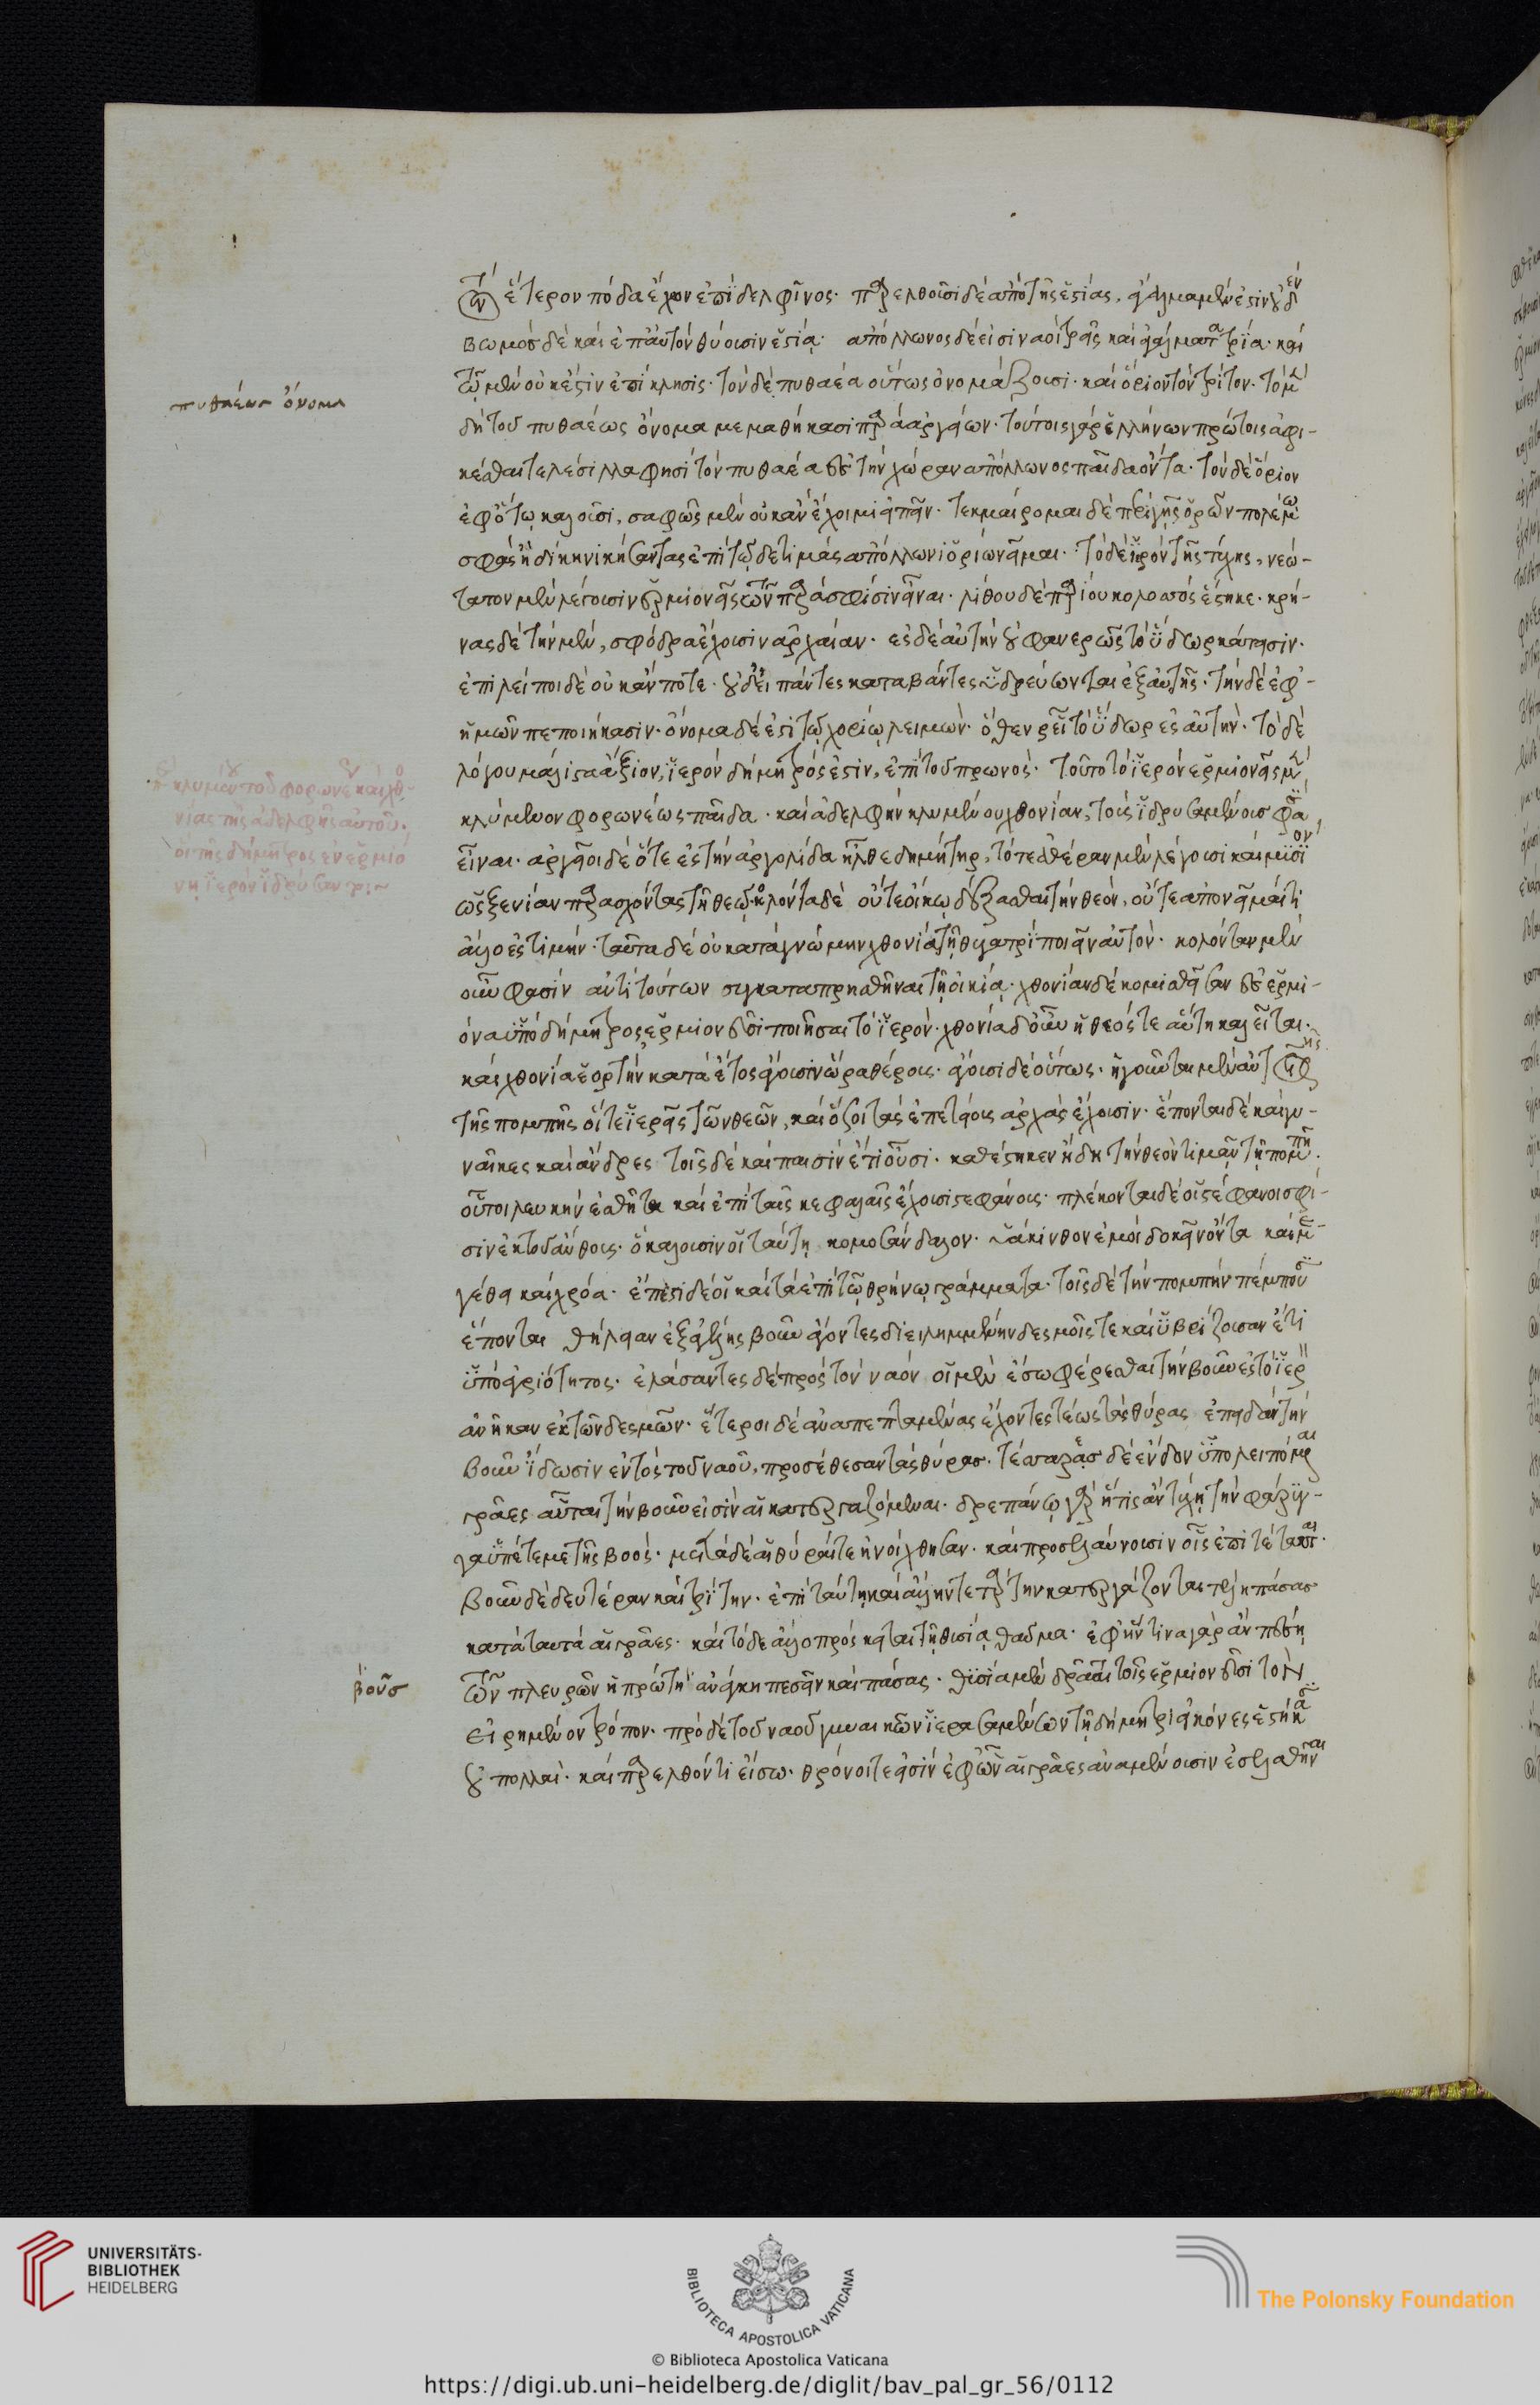 τὸν ἕτερον πόδα ἔχον ἐπὶ δελφῖνος· παρελθοῦσι δὲ ἀπὸ τῆς ἑστίας, ἄγαλμα μέν ἐστιν οὐδέν
βωμὸς δὲ καὶ ἐπ αὐτὸν θύουσιν ἑστία· ἀπόλλωνος δέ εἰσι ναοὶ τρεῖς καὶ ἀγάλματα τρία· καὶ
τῶ μὲν οὐκ ἔστιν ἐπίκλησις· τὸν δὲ πυθαέα οὕτως ὀνομάζουσι· καὶ ὅριον τὸν τρίτον· τὸ μὲν
πυθαέωσ ὄνομα
δὴ τοῦ πυθαέως ὄνομα μεμαθήκασι παρὰ ἀργείων· τούτοις γὰρ ἑλλήνων πρώτοις ἀφι-
κέσθαι τελέσιλλα φησὶ τὸν πυθαέα ἐς τὴν χώραν ἀπόλλωνος παῖδα ὄντα· τὸν δὲ ὅριον
ἐφ ὅτω καλοῦσι, σαφῶς μὲν οὐκ ἂν ἔχοιμι εἰπεῖν· τεκμαίρομαι δὲ περὶ γῆς ὅρων πολέμω
σφᾶς ἢ δίκη νικήσαντας ἐπὶ τῶδε τιμὰς ἀπόλλωνι ὁρίω νεῖμαι· τὸ δὲ ἱερὸν τῆς τύχης, νεώ-
τατον μὲν λέγουσιν ἑρμιονεῖς τῶν παρὰ σφίσιν εἶναι· λίθου δὲ παρίου κολοσσὸς ἕστηκε· κρή-
νας δὲ τὴν μὲν, σφόδρα ἔχουσιν ἀρχαίαν· ἐς δὲ αὐτὴν οὐ φανερῶς τὸ ὕδωρ κάτεισιν·
ἐπιλείποι δὲ οὐκ ἄν ποτε· οὐδ εἰ πάντες καταβάντες ὑδρεύωνται ἐξ αὐτῆς· τὴν δὲ ἐφ-
ἡμῶν πεποιήκασιν· ὄνομα δέ ἐστι τῶ χωρίω λειμών· ὅθεν ῥεῖ τὸ ὕδωρ ἐς αὐτήν· τὸ δὲ
λόγου μάλιστα ἄξιον, ἱερὸν δήμητρός ἐστιν, ἐπὶ τοῦ πρωνός· τοῦτο τὸ ἱερὸν ἑρμιονεῖς μὲν
κλύμενον φορωνέως παῖδα· καὶ ἀδελφὴν κλυμένου χθονίαν, τοὺς ἱδρυσαμένουσ φασὶν
εἶναι· ἀργεῖοι δὲ ὅτε ἐς τὴν ἀργολίδα ἦλθε δημήτηρ, τότε ἀθέραν μὲν λέγουσι καὶ μύσιον
ὡς ξενίαν παρασχόντας τῆ θεῶ· κολόνταδὲ οὔτε οἴκω δέξασθαι τὴν θεὸν, οὔτε ἀπονεῖμαί τι
ἄλλο ἐς τιμήν· ταῦτα δὲ οὐ κατὰ γνώμην χθονία τῆ θυγατρὶ ποιεῖν αὐτόν· κολόνταν μὲν
οὖν φασὶν ἀντὶ τούτων συγκαταπρησθῆναι τῆ οἰκία· χθονίαν δὲ κομισθεῖσαν ἐς ἑρμι-
όνα ὑπὸ δήμητρος ἑρμιονεῦσι ποιῆσαι τὸ ἱερόν· χθονία δ οὖν ἡ θεός τε αὕτη καλεῖται·
καὶ χθονία ἑορτὴν κατὰ ἔτος ἄγουσιν ὥρα θέρους· ἄγουσι δὲ οὕτως· ἡγοῦνται μὲν αὐτοῖς
τῆς πομπῆς οἵ τε ἱερεῖς τῶν θεῶν, καὶ ὅσοι τὰς ἐπετείους ἀρχὰς ἔχουσιν· ἕπονται δὲ καὶ γυ-
ναῖκες καὶ ἄνδρες τοῖς δὲ καὶ παισὶν ἔτι οὖσι· καθέστηκεν ἤδη τὴν θεὸν τιμᾶν τῆ πομπῆ·
οὗτοι λευκὴν ἐσθῆτα καὶ ἐπὶ ταῖς κεφαλαῖς ἔχουσι στεφάνους· πλέκονται δὲ οἱ στέφανοι σφί-
σιν ἐκ τοῦ ἄνθους· ὃ καλοῦσιν οἱ ταύτη κομοσάνδαλον· ὑάκινθον ἐμοὶ δοκεῖν ὄντα καὶ με-
γέθει καὶ χρόα· ἔπεστι δέ οἱ καὶ τὰ ἐπὶ τῶ θρήνω γράμματα· τοῖς δὲ τὴν πομπὴν πέμπουσιν
ἕπονται θήλειαν ἐξ ἀγέλης βοῦν ἄγοντες διειλημμένην δεσμοῖς τε καὶ ὑβρίζουσαν ἔτι
ὑπὸ ἀγριότητος· ἐλάσαντες δὲ πρὸς τὸν ναὸν οἱ μὲν ἔσω φέρεσθαι τὴν βοῦν ἐς τὸ ἱερὸν
ἀνῆκαν ἐκ τῶν δεσμῶν· ἕτεροι δὲ ἀναπεπταμένας ἔχοντες τέως τὰς θύρας ἐπειδὰν τὴν
βοῦν ἴδωσιν ἐντὸς τοῦ ναοῦ, προσέθεσαν τὰς θύρασ· τέσσαρεσ δὲ ἔνδον ὑπολειπόμεναι
γρᾶες αὗται τὴν βοῦν εἰσὶν αἱ κατεργαζόμεναι· δρεπάνω γὰρ ἥτις ἂν τύχη τὴν φάρυγ-
γα ὑπέτεμε τῆς βοός· μετὰ δὲ αἱ θύραι τε ἠνοίχθησαν· καὶ προσελαύνουσιν οἷς ἐπιτέτακται·
βοῦν δὲ δευτέραν καὶ τρίτην· ἐπὶ ταύτη καὶ ἄλλην τετάρτην κατεργάζονταί τε δὴ πάσασ
κατὰ ταυτὰ αἱ γρᾶες· καὶ τόδε ἄλλο πρόσκειται τῆ θυσία θαῦμα· ἐφ ἥντινα γὰρ ἂν πέση
βοῦσ
τῶν πλευρῶν ἡ πρώτη ἀνάγκη πεσεῖν καὶ πάσας· θυσία μὲν δρᾶται τοῖς ἑρμιονεῦσι τὸν
εἰρημένον τρόπον· πρὸ δὲ τοῦ ναοῦ γυναικῶν ἱερασαμένων τῆ δήμητρι εἰκόνες ἑστήκασιν
οὐ πολλαί· καὶ παρελθόντι εἴσω· θρόνοι τε εἰσὶν ἐφ ὧν αἱ γρᾶες ἀναμένουσιν ἐσελαθῆναι
UNIVERSITÄTS-
BIBLIOTHEK
HEIDELBERG
BIBLIOTECA APOSTOLICA VATICANA
The Polonsky Foundation
© Biblioteca Apostolica Vaticana
https://digi.ub.uni-heidelberg.de/diglit/bav_pal_gr_56/0112